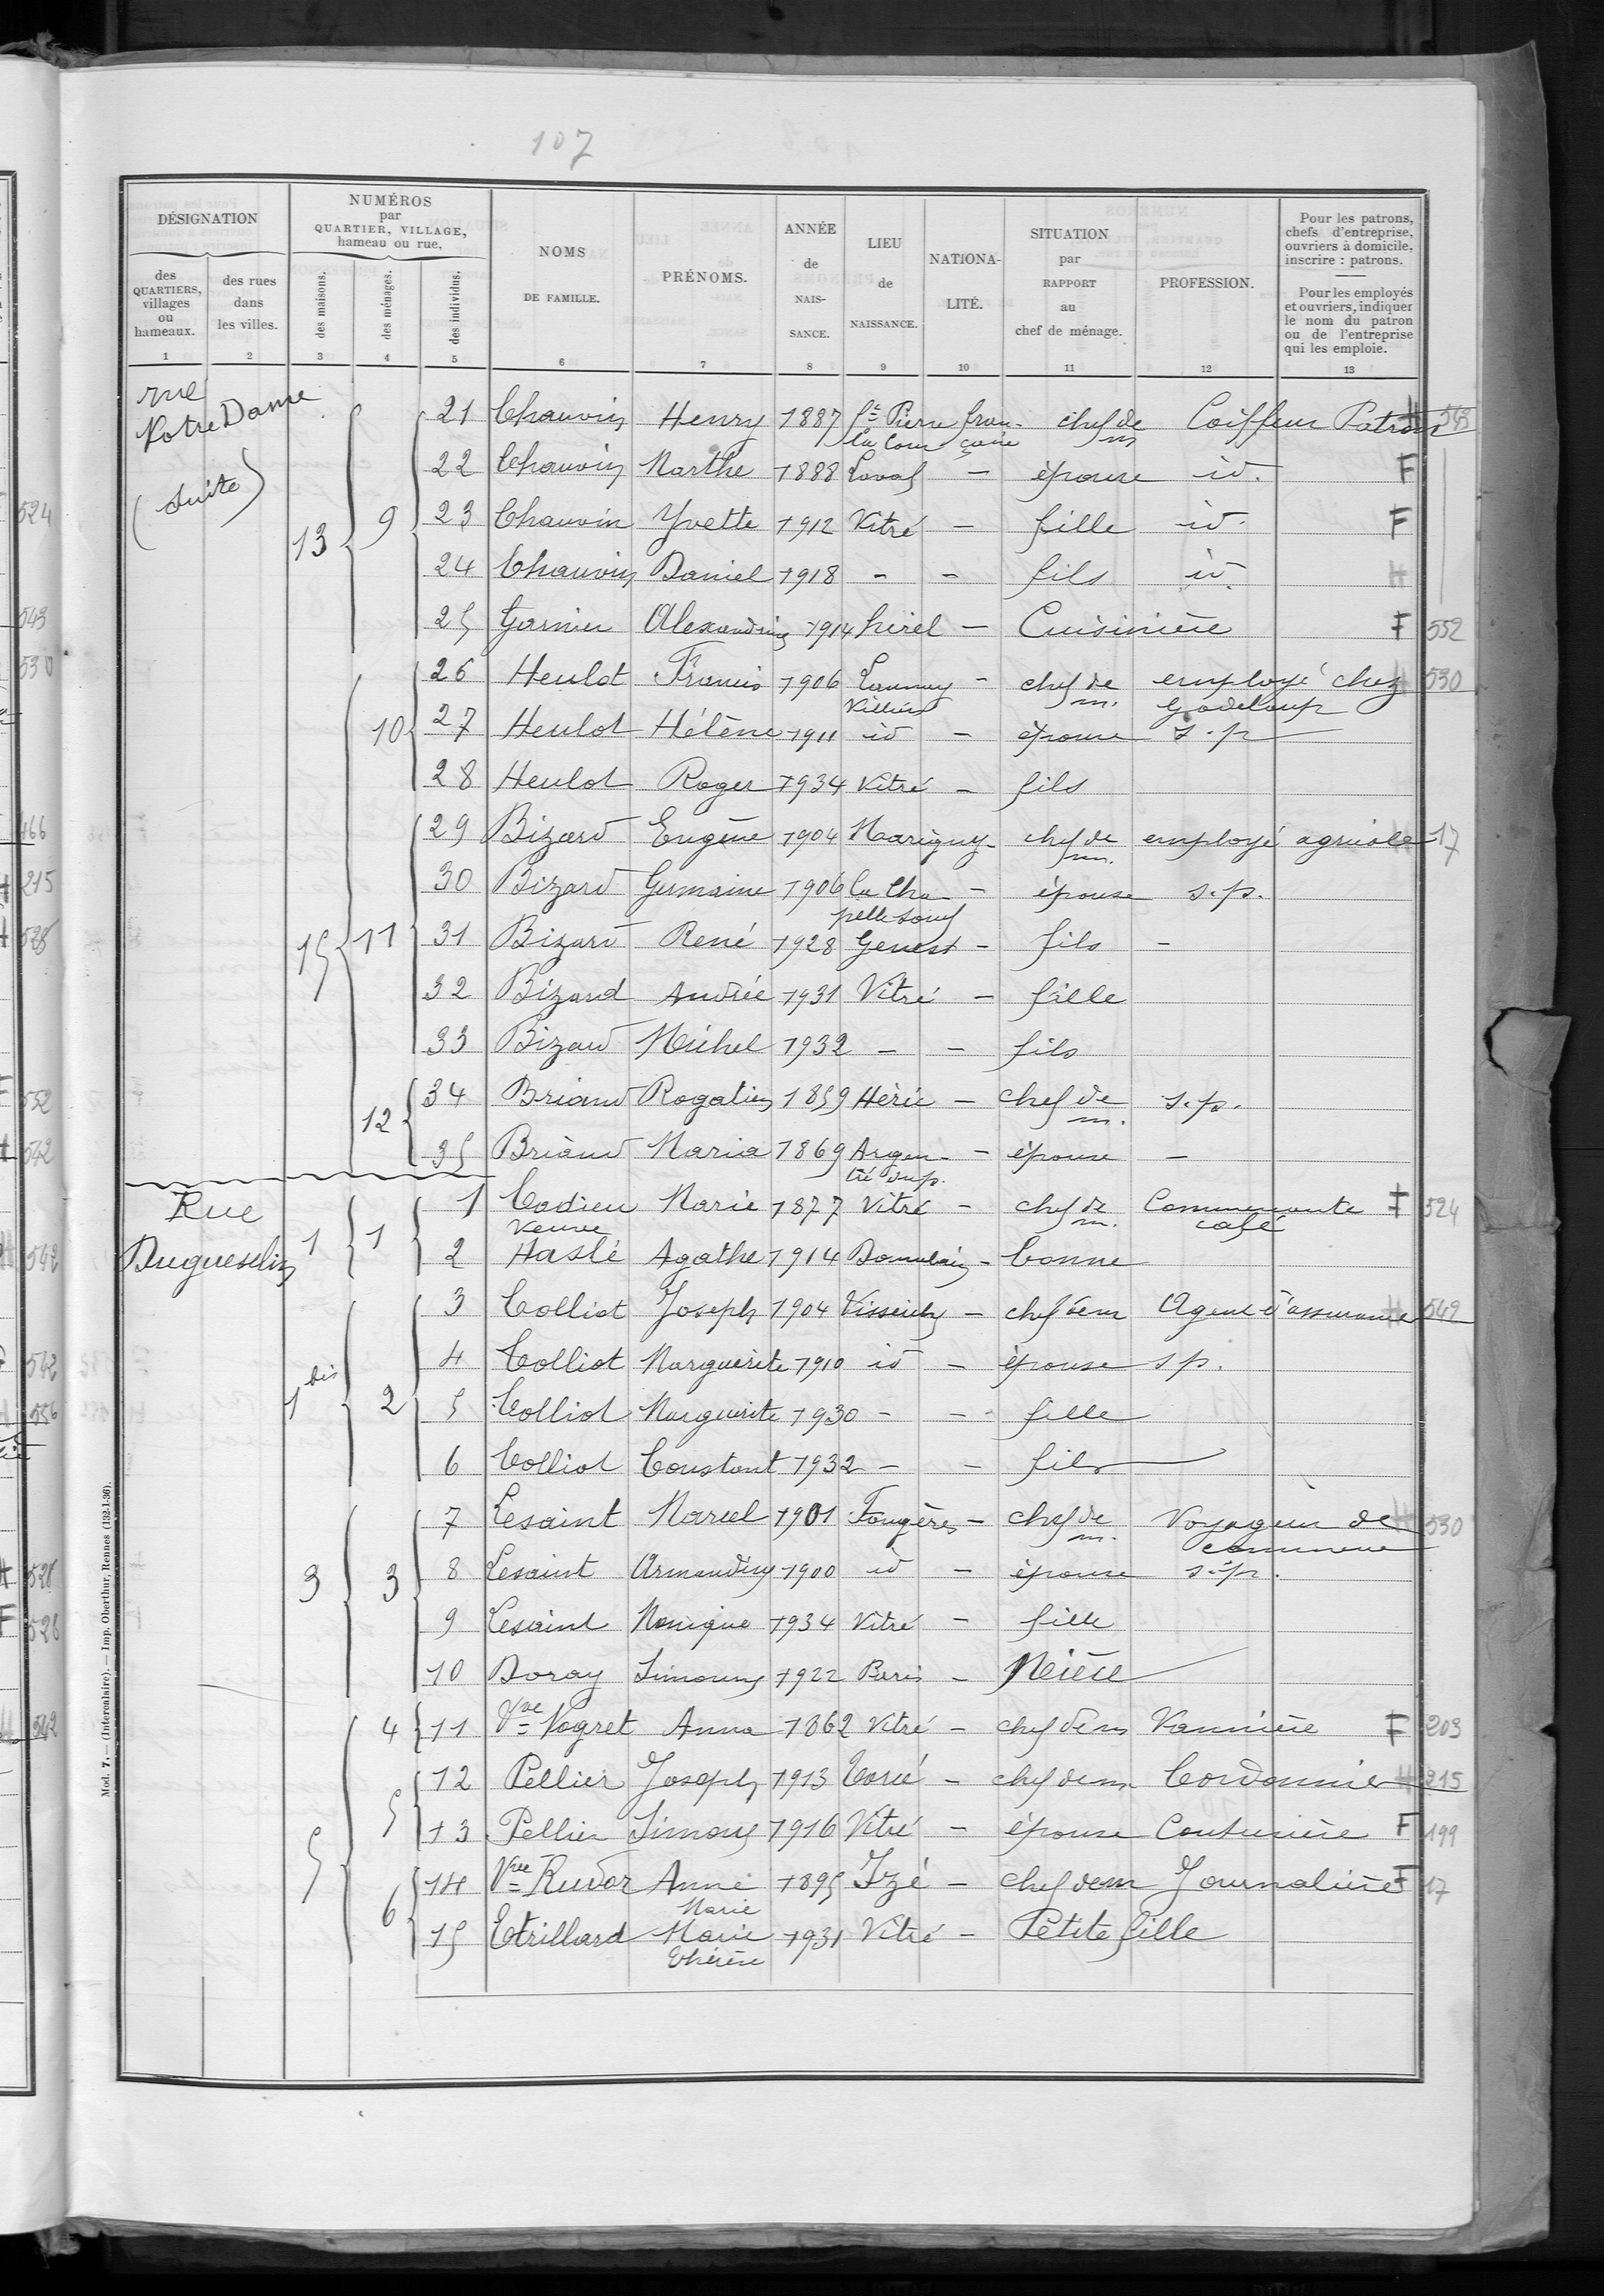 107
DÉSIGNATION
NUMÉROS
par
QUARTIER, VILLAGE,
hameau ou rue.
des
QUARTIERS,
villages
ou
hameaux.
des rues
dans
les villes.
des maisons.
des ménages.
des individus.
NOMS
DE FAMILLE.
PRÉNOMS.
ANNÉE
de
NAIS-
SANCE.
LIEU
de
NAISSANCE.
NATIONA-
LITÉ.
SITUATION
par
RAPPORT
au
chef de ménage.
PROFESSION.
Pour les patrons,
chefs d'entreprise,
ouvriers à domicile,
inscrire : patrons.
Pour les employés
et ouvriers, indiquer
le nom du patron
ou de l'entreprise
qui les emploie.
1 2 3 4 5 6 7 8 9 10 11 12 13
rue
Notre Dame
(suite)
13 9
21 Chauvin Henry 1887 St Pierre fran- chef de Coiffeur Patron
la Cour çaise m
22 Chauvin Marthe 1888 Laval - épouse id. F
23 Chauvin Yvette 1912 Vitré - fille id. F
24 Chauvin Daniel 1918 - - fils id. H
25 Garnier Alexandrine 1914 hirel - Cuisinière F 552
10
26 Heulot Francis 1906 Launay - chef de employé chez 530
Villiers m. Godeloup
27 Heulot Hélène 1911 id - épouse s.p
28 Heulot Roger 1934 Vitré - fils
15 11
29 Bizard Eugène 1904 Marigny - chef de employé agricole 17
m.
30 Bizard Germaine 1906 la Cha - épouse s.p.
pelle sous
31 Bizard René 1928 Genest - fils -
32 Bizard Andrée 1931 Vitré - fille
33 Bizard Michel 1932 - - fils
12
34 Briand Rogatien 1859 Héric - chef de s.p.
m.
35 Briand Maria 1869 Argen- - épouse -
tré sup.
Rue
Duguesclin
1 1
1 Cadieu Marie 1877 Vitré - chef de Commerçante F 524
Veuve m. café
2 Haslé Agathe 1914 Domalain - bonne
1 bis 2
3 Colliot Joseph 1904 Visseiche - chef de m Agent d'assurance 549
4 Colliot Marguerite 1910 id - épouse s p.
5 Colliot Marguerite 1930 - - fille
6 Colliot Constant 1932 - - fils
3 3
7 Lesaint Marcel 1901 Fougères - chef de Voyageur de 530
m. commerce
8 Lesaint Armandine 1900 id - épouse s.p.
9 Lesaint Monique 1934 Vitré - fille
10 Doray Simonne 1922 Paris - Nièce
5
4 11 Vve Nogret Anna 1862 Vitré - chef de m Vannière F 203
5 12 Pellier Joseph 1913 Torcé - chef de m Cordonnier H 215
13 Pellier Simone 1916 Vitré - épouse Couturière F 199
6 14 Vve Rudor Anne 1895 Izé - chef de m Journalière F 17
Marie
15 Etrillard Marie 1931 Vitré - Petite fille
Thérèse
Mod. 7. — (Intercalaire). — Imp. Oberthur, Rennes (132-1-36).